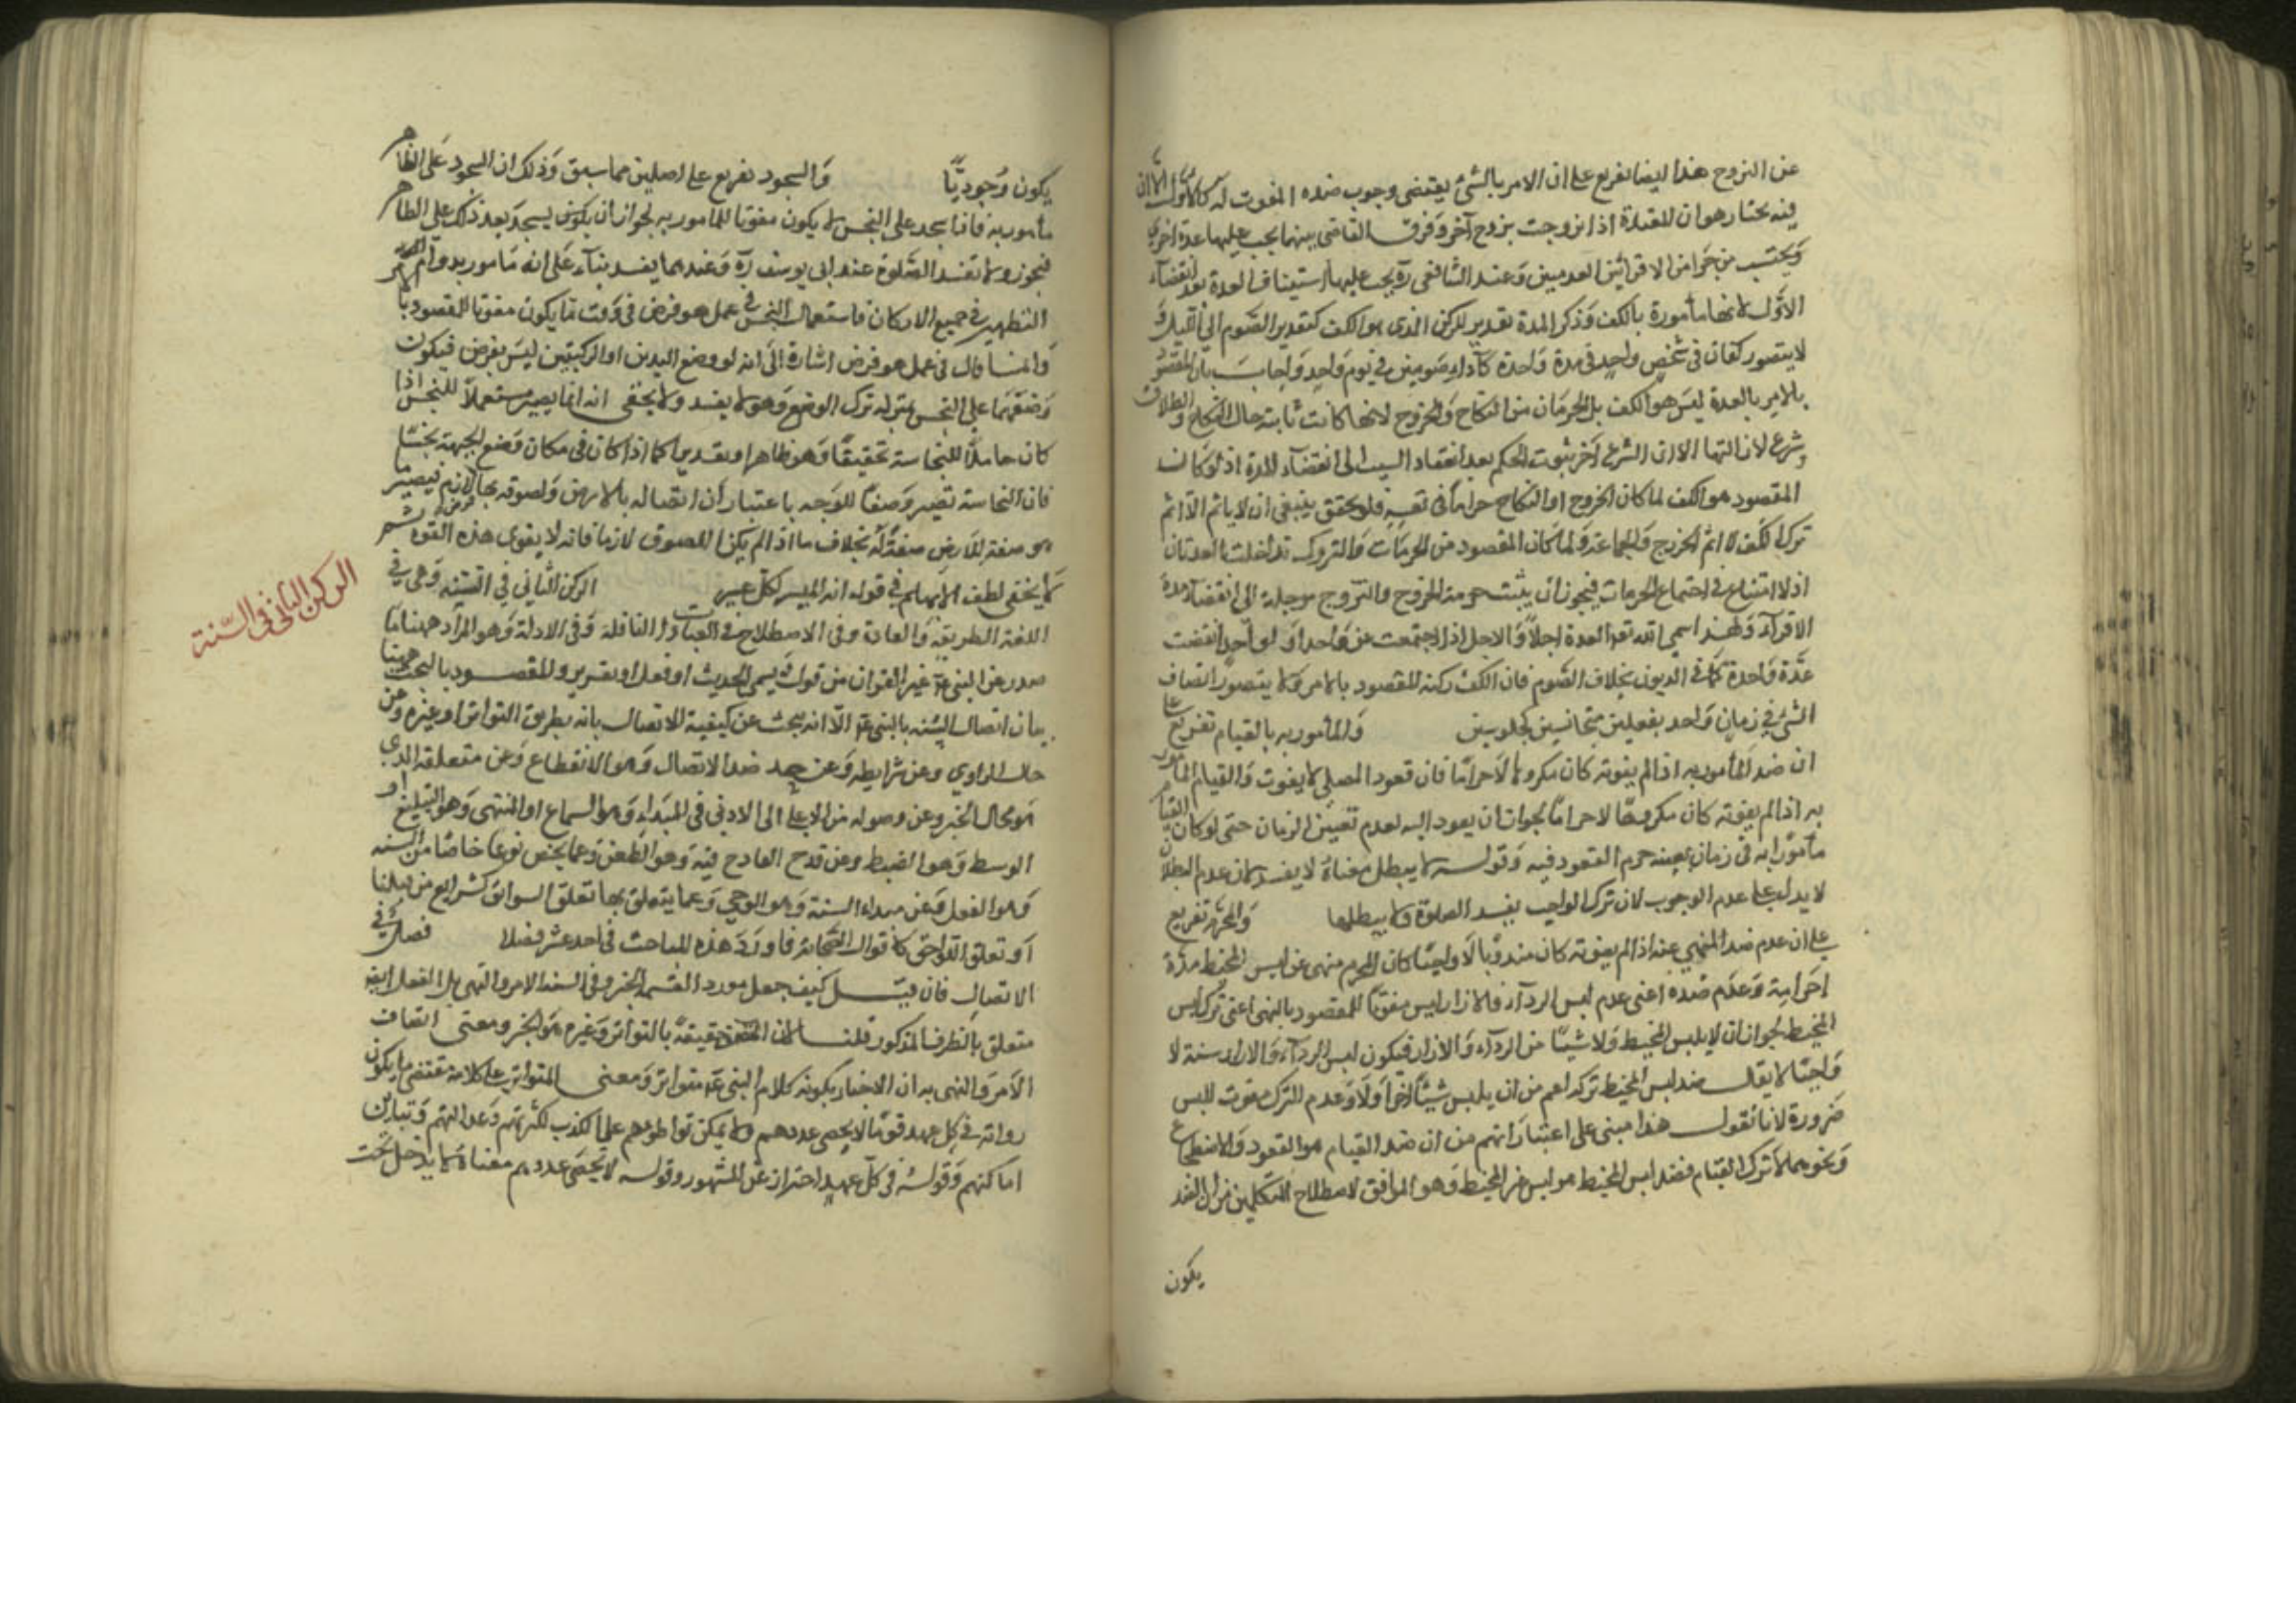 عن التزوج هذا ايضا تفريع على ان الامر بالشئ يقتضي وجوب ضده المفوت له كالاول الا ان
فيه بحثا وهو ان المعتدة اذا تزوجت بزوج آخر وفرق القاضي بينهما يجب عليها عدة اخرى
ويحتسب من الاقرائين العدمين وعند الشافعي ره يجب عليها استيناف العدة بعد انقضاء
الاول لانها مأمورة بالكف وذكر المدة تقدير للركن الذي هو الكف كتقدير الصوم الى الليل و
لا يتصور كفان في شخص واحد في مدة واحدة كاداء صومين في يوم واحد واجاب بان المقصود
بالامر بالعدة ليس هو الكف بل الحرمات من النكاح والخروج لانها كانت ثابتة حال النكاح والطلاق
شرع لازالتها الا ان الشرع اخر ثبوت الحكم بعد انعقاد السبب الى انقضاء المدة اذ لو كان
المقصود هو الكف لما كان الخروج او النكاح حراما في نفسه فلو تحقق ينبغي ان لا ياثم الا اثم
ترك الكف لا اثم الخروج والجماعة ولما كان المقصود من الحرمات والتروك تداخلت العدتان
اذ لا امتناع في اجتماع الحرمات فيجوز ان يثبت حرمة الخروج والتزوج مؤجلة الى انقضاء مدة
الاقرآء ولهذا سمى الله تعالى العدة اجلا والاجل اذا اجتمعت من واحد او لواحد انقضت
عدة واحدة كما في الديون بخلاف الصوم فان الكف ركنه المقصود بالامر ولا يتصور اتصاف
الشئ في زمان واحد بفعلين متجانسين كجلوسين والمأمور به بالقيام تفريع على
ان ضد المأمور به اذا لم يفوته كان مكروها لا حراما فان قعود المصلي لا يفوت والقيام المأمور
به اذا لم يفوته كان مكروها لا حراما لجواز ان يعود اليه لعدم تعيين الزمان حتى لو كان القيام
مأمورا به في زمان بعينه حرم القعود فيه وقوله لا يبطل معناه لا يفسد لان عدم البطلان
لا يدل على عدم الوجوب لان ترك الواجب يفسد الصلوة ولا يبطلها والمحرم تفريع
على ان عدم ضد المنهي عنه اذا لم يفوته كان مندوبا لا واجبا كان المحرم منهي عن لبس المخيط مدة
احرامه وعدم ضده اعني عدم لبس الرداء والازار ليس مفوتا للمقصود بالنهي اعني ترك لبس
المخيط لجواز ان لا يلبس المخيط ولا شيئا من الرداء والازار فيكون لبس الرداء والازار سنة لا
واجبا لا يقال ضد لبس المخيط تركه اعم من ان يلبس شيئا اخر اولا وعدم الترك مفوت للبس
ضرورة لانا نقول هذا مبني على اعتبارانهم من ان ضد القيام هو القعود والاضطجاع
ونحوهما لا ترك القيام فضد لبس المخيط هو لبس غير المخيط وهو الموافق لاصطلاح المتكلمين من ان الضد
يكون
يكون وجوديا والسجود تفريع على اصلين مما سبق وذلك ان السجود على الطاهر
مأمور به فاذا سجد على النجس لا يكون مفوتا للمامور به لجواز ان يكون يسجد بعد ذلك على الطاهر
فيجوز ولا تفسد الصلوة عند ابي يوسف ره وعندهما يفسد بناء على انه مامور بدوام
التطهير في جميع الاركان فاستعمال النجس في عمل هو فرض في وقت ما يكون مفوتا للمقصود بالامر
وانما قال في عمل هو فرض اشارة الى انه لو وضع اليدين او الركبتين ليس بفرض فيكون
وضعهما على النجس بمنزلة ترك الوضع وهو لا يفسد ولا يخفى انه انما يصير مستعملا للنجس اذا
كان حاملا للنجاسة تحقيقا وهو ظاهر او تقديرا كما اذا كان في مكان وضع الجبهة نجسا
فان النجاسة تصير وصفا للوجه باعتبار ان اتصاله بالارض ولصوقه بها لازم فيصير
هو صفة للارض صفة له بخلاف ما اذا لم يكن اللصوق لازما فانه لا يقوى هذه القوة ثم
لا يخفى لطف الايهام في قوله انه الميسر لكل عسير الركن الثاني في السنة وهي في
اللغة الطريقة والعادة وفي الاصطلاح في العبادات النافلة وفي الادلة وهو المراد ههنا ما
صدر عن النبي عم غير القرآن من قول ويسمى الحديث او فعل او تقرير والمقصود بالبحث ههنا
بيان اتصال السنة بالنبي عم الا انه يبحث عن كيفية الاتصال بانه بطريق التواتر او غيره وعن
حال الراوي وعن شرايطه وعن ضد الاتصال وهو الانقطاع وعن متعلقه الذي
هو محل الخبر وعن وصوله من الاعلى الى الادنى في المبداء وهو السماع او المنتهى وهو التبليغ او
الوسط وهو الضبط وعن قدح القادح فيه وهو الطعن وعما يخص نوعا خاصا من السنة
وهو الفعل وعن مبداء السنة وهو الوحي وعما يتعلق بها تعلق السوابق كشرايع من قبلنا
او تعلق اللواحق كاقوال الصحابة فاورد هذه المباحث في احد عشر فصلا فصل في
الاتصال فان قيل كيف جعل مورد القسمة الخبر وفي السنة الامر والنهي بل الفعل ايضا
متعلق بالطرف المذكور قلنا لان المتصف حقيقة بالتواتر وغيره هو الخبر ومعنى اتصاف
الامر والنهي به ان الاخبار بكونه كلام النبي عم متواتر ومعنى المتواتر على كلامه مقتضى ما يكون
رواته في كل عهد قوما لا يحصى عددهم ولا يمكن تواطؤهم على الكذب لكثرتهم وعدالتهم وتباين
اماكنهم وقوله في كل عهد احتراز عن المشهور وقوله لا يحصى عددهم معناه لا يدخل تحت
الركن الثاني في السنة